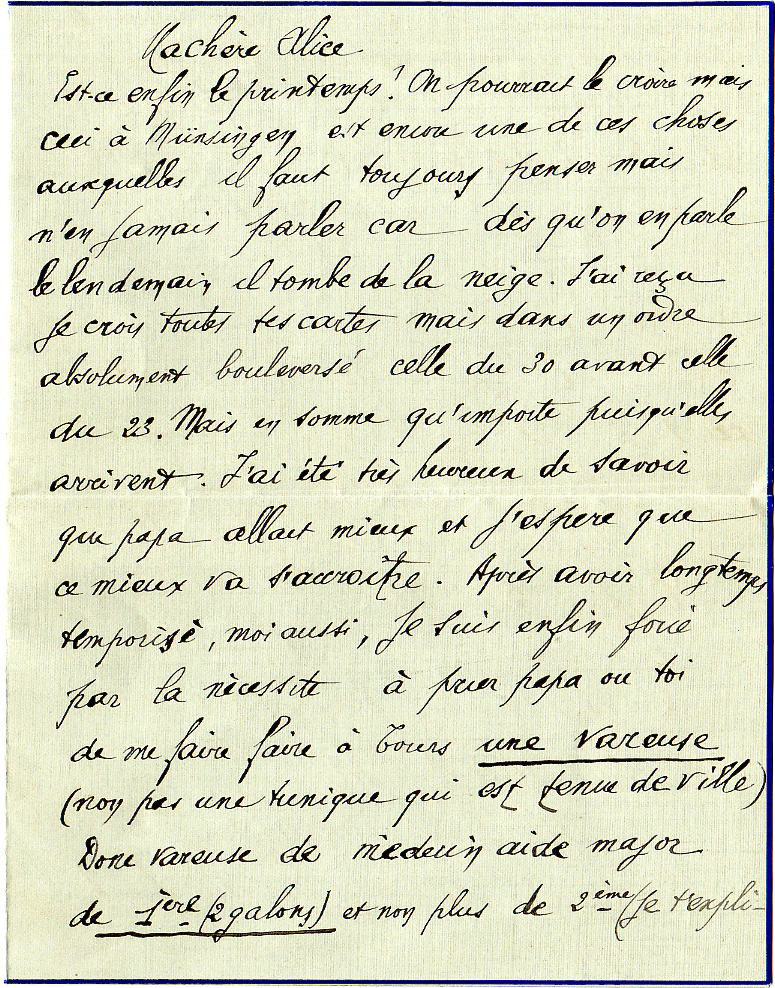 Ma chère Alice
Est-ce enfin le printemps? On pourrait le croire mais
ceci à Münsingen est encore une de ces choses
auxquelles il faut toujours penser mais
n'en jamais parler car dès qu'on en parle
le lendemain il tombe de la neige. J'ai reçu
je crois toutes tes cartes mais dans un ordre
absolument bouleversé celle du 30 avant celle
du 23. Mais en somme qu'importe puisqu'elles
arrivent. J'ai été très heureux de savoir
que papa allait mieux et j'espère que
ce mieux va s'accroître. Après avoir longtemps
temporisé, moi aussi, je suis enfin forcé
par la nécessité à prier papa ou toi
de me faire faire à Tours une vareuse
(non pas une tunique qui est tenue de ville)
Donc vareuse de médecin aide major
de 1ère (2 galons) et non plus de 2ème (je t'expli-